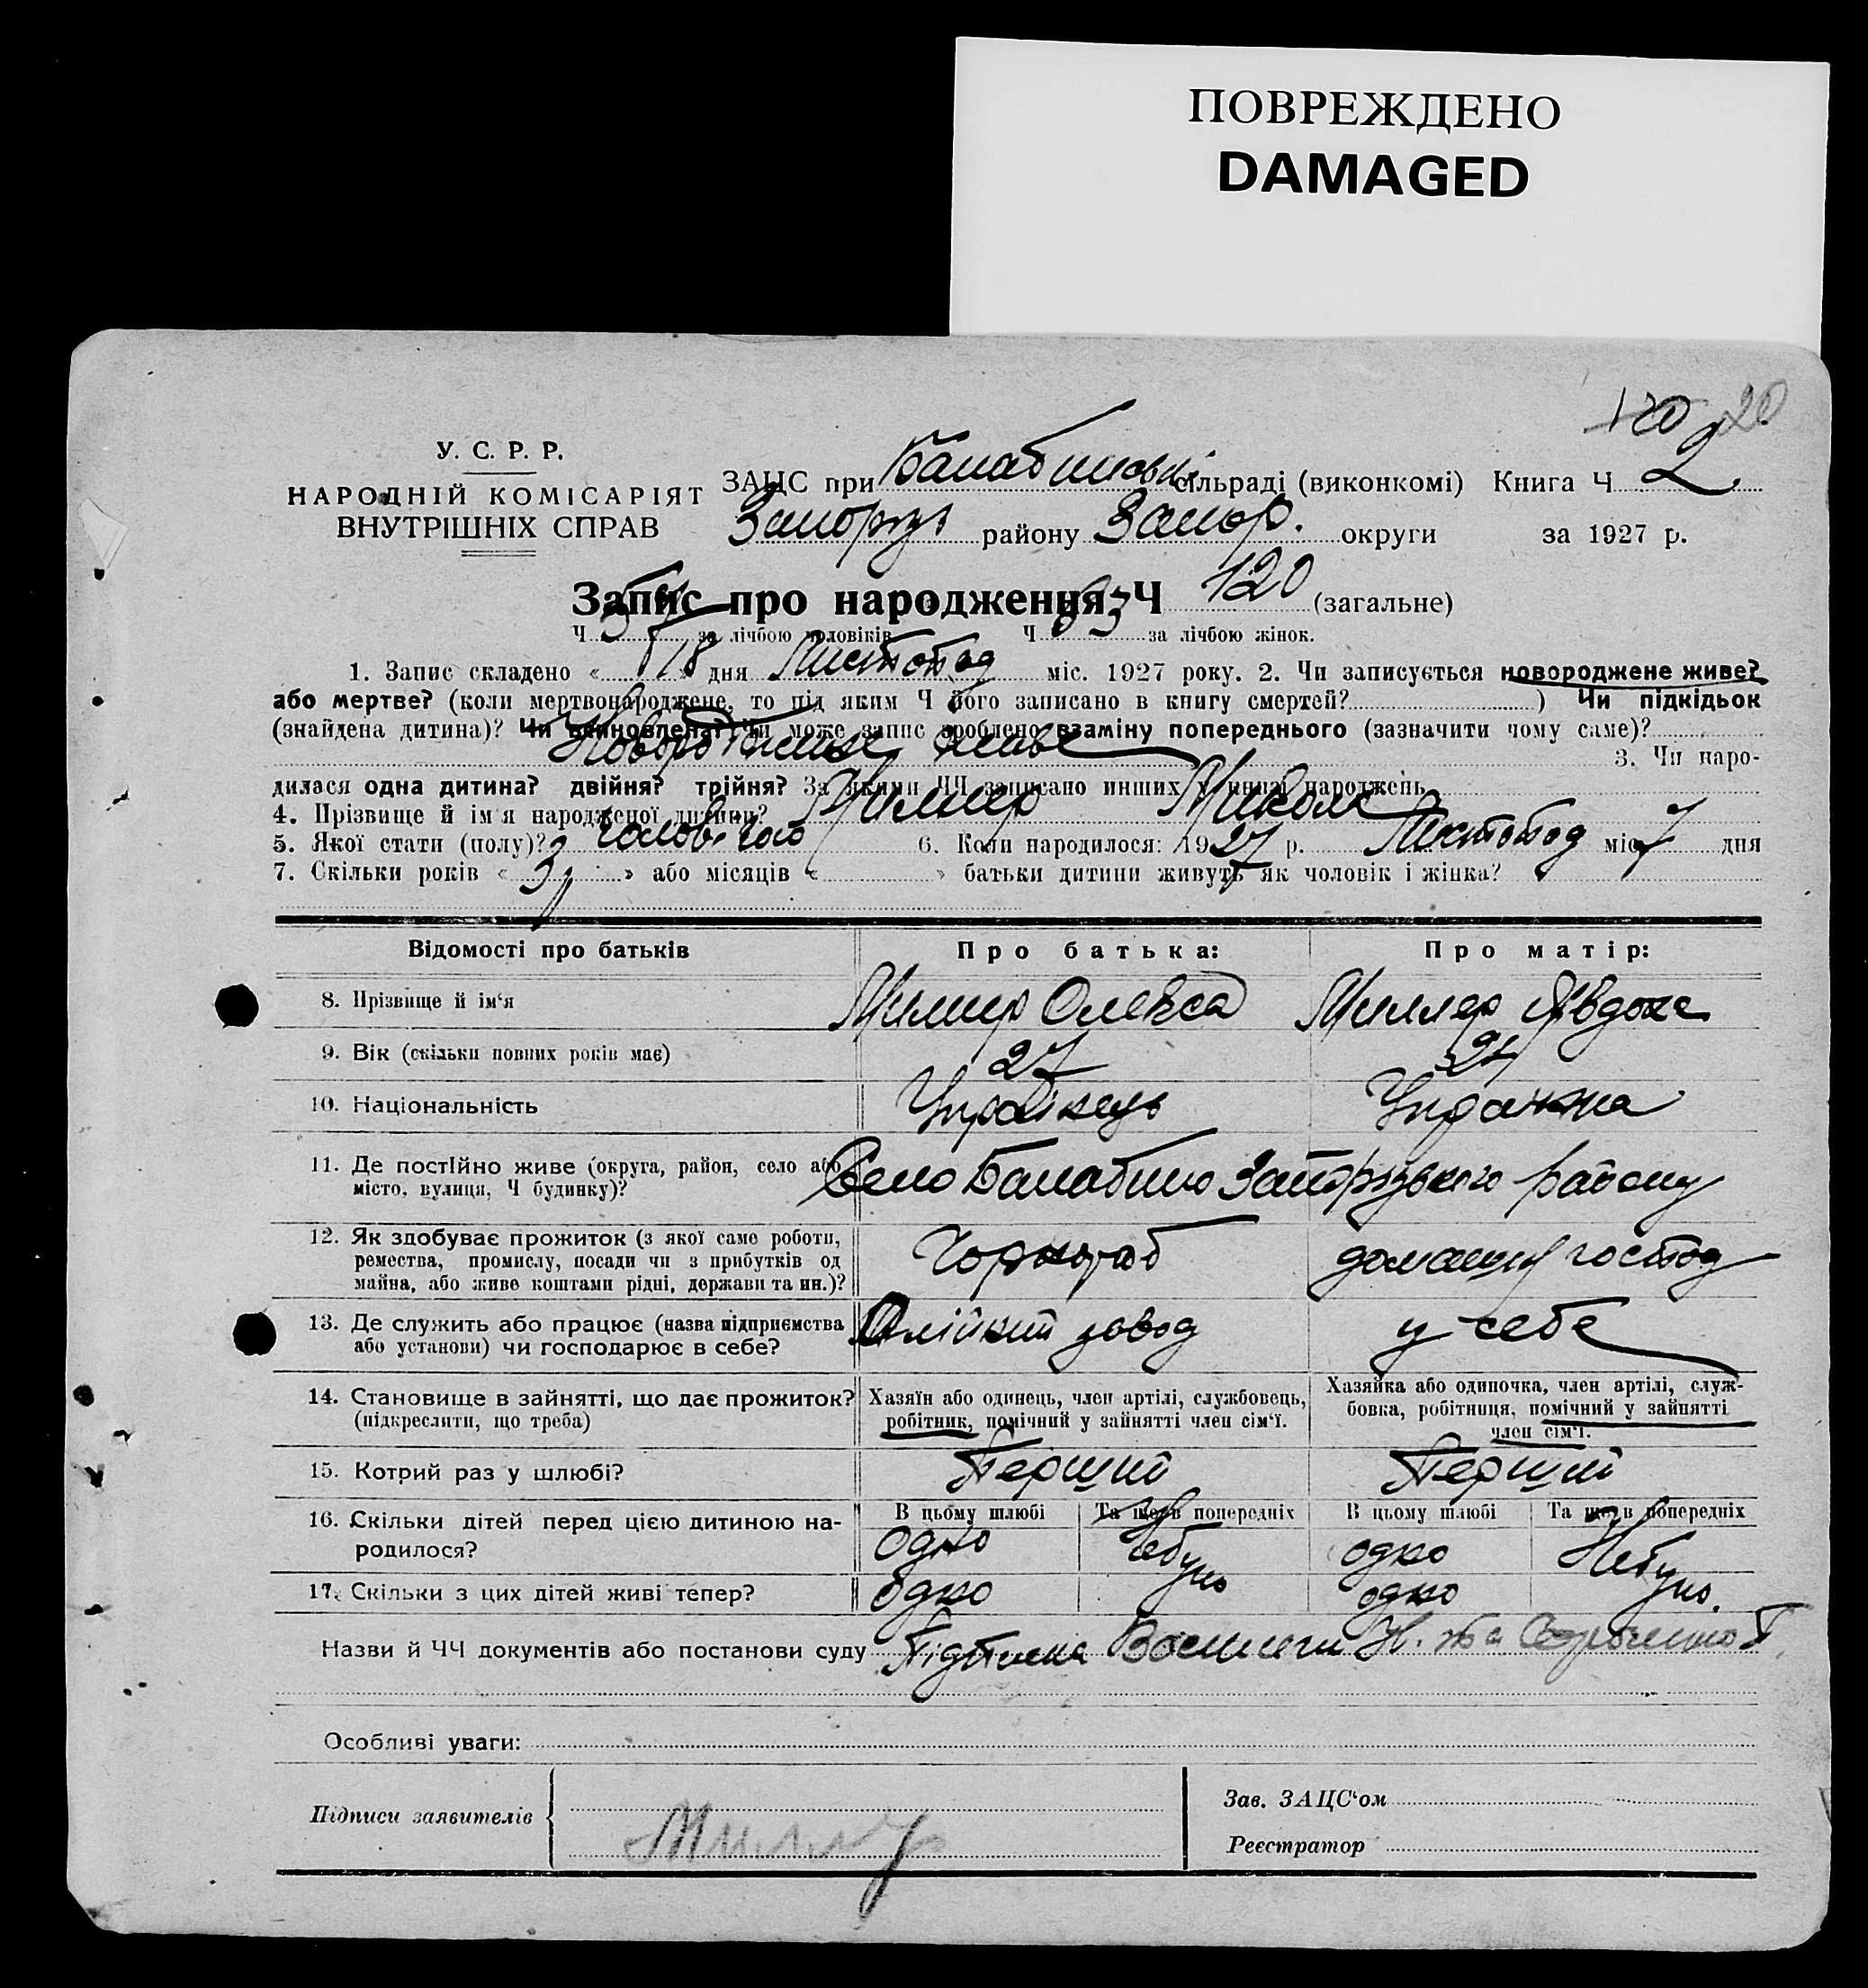 ПОВРЕЖДЕНО
DAMAGED
120 20
У. С. Р. Р.
НАРОДНІЙ КОМІСАРІЯТ
ВНУТРІШНІХ СПРАВ
ЗАЦС при Балабинській сільраді (виконкомі) Книга Ч 2
Запоріз району Запор. округи за 1927 р.
Запис про народження Ч 120 (загальне)
Ч за лічбою чоловіків Ч 63 за лічбою жінок.
1. Запис складено « 18 » дня Листопад міс. 1927 року. 2. Чи записується новороджене живе?
або мертве? (коли мертвонароджене, то під яким Ч його записано в книгу смертей? ) Чи підкідьок
(знайдена дитина)? Чи вдиновлена? Чи може запис зроблено взаміну попереднього (зазначити чому саме)?
живе 3. Чи наро-
дилася одна дитина? двійня? трійня? За якими ЧЧ записано инших у книзі народжень
4. Прізвище й ім'я народженої дитини? Миллер Микола
5. Якої стати (полу)? Чоловічого 6. Коли народилося: 1927 р. Листопад міс. 7 дня
7. Скільки років « 3 » або місяців « » батьки дитини живуть як чоловік і жінка?
Відомості про батьків Про батька: Про матір:
8. Прізвище й ім'я Миллер Олекса Миллер Явдоха
9. Вік (скільки повних років має) 27
10. Національність Українець Українка
11. Де постійно живе (округа, район, село або
місто, вулиця, Ч будинку)? Село Балабино Запорізького району
12. Як здобуває прожиток (з якої саме роботи,
ремества, промислу, посади чи з прибутків од
майна, або живе коштами рідні, держави та ин.)? Чорнораб домашнє господ
13. Де служить або працює (назва підприємства
або установи) чи господарює в себе? Олійний завод у себе
14. Становище в зайнятті, що дає прожиток?
(підкреслити, що треба)
Хазяїн або одинець, член артілі, службовець,
робітник, помічний у зайнятті член сім'ї.
Хазяйка або одиночка, член артілі, служ-
бовка, робітниця, помічний у зайнятті
член сім'ї.
15. Котрий раз у шлюбі? Перший Перший
16. Скільки дітей перед цією дитиною на-
родилося?
В цьому шлюбі Та ще в попередніх В цьому шлюбі Та ще в попередніх
одно Небуло одно Небуло.
17. Скільки з цих дітей живі тепер? одно одно
Назви й ЧЧ документів або постанови суду Підписка
Особливі уваги:
Підписи заявителів Миллер
Зав. ЗАЦС'ом
Реєстратор